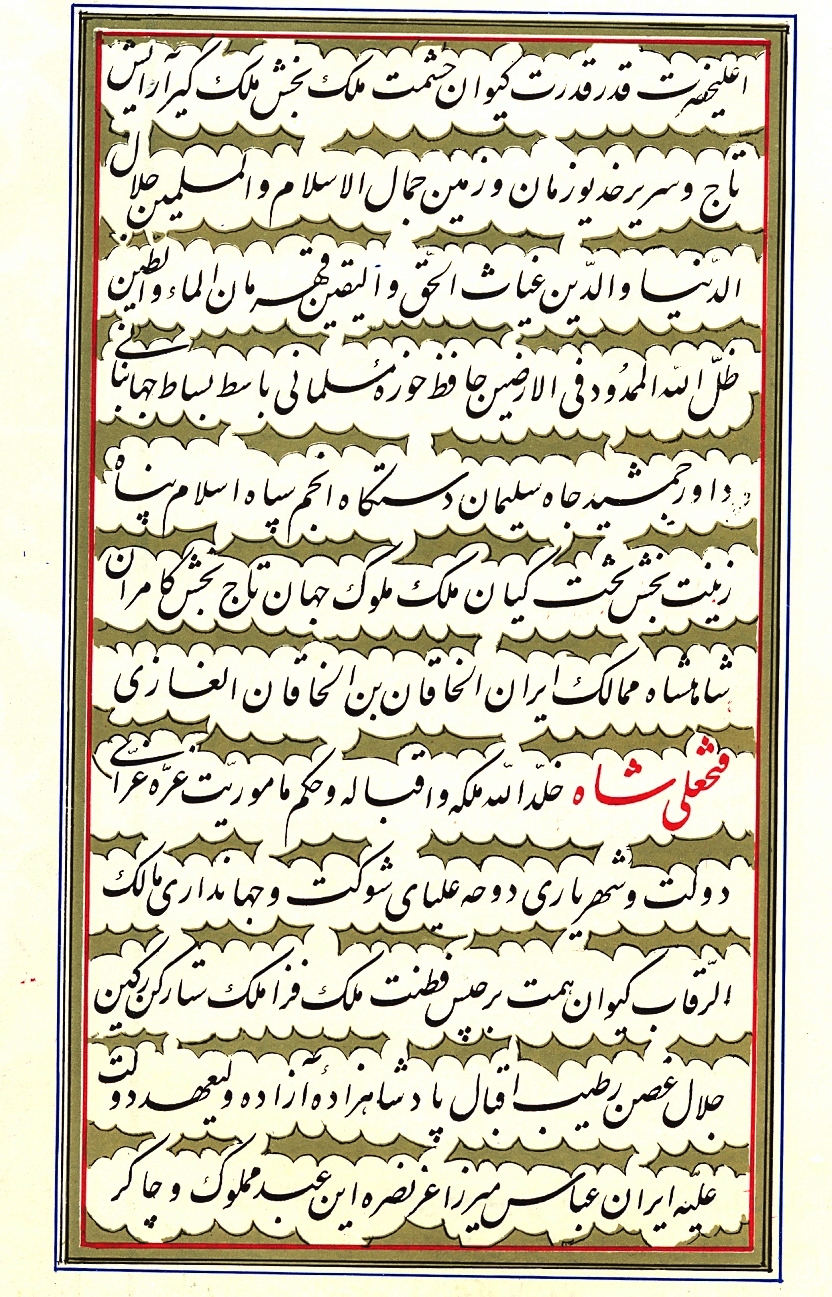 اعلیحضرت قدر قدرت کیوان حشمت ملک بخش ملک گیر آرایش
تاج و سریر خدیو زمان و زمین جمال الاسلام و المسلمین جلال
الدّنیا و الدّین غیاث الحقّ و الیقین قهرمان الماء و الطین
ظلّ الله الممدُود فی الارضین حافظ حوزهٔ مسلمانی باسط بساط جهانبانی
داور جمشید جاه سلیمان دستگاه انجم سپاه اسلام پناه
زینت بخش تخت کیان ملک ملوک جهان تاج بخش کامران
شاهنشاه ممالک ایران الخاقان بن الخاقان الغازی
فتحعلی شاه خلّد الله ملکه و اقباله و حکم ماموریّت غرّه غرّای
دولت و شهریاری دوحه علیای شوکت و جهانداری مالک
الرّقاب کیوان همت برجیس فطنت ملک فرا ملک ستا رکن رکین
جلال غصن رطیب اقبال پادشاهزادهٔ آزاده ولیعهد دولت
علیّه ایران عباس میرزا عز نصره این عبد مملوک و چاکر